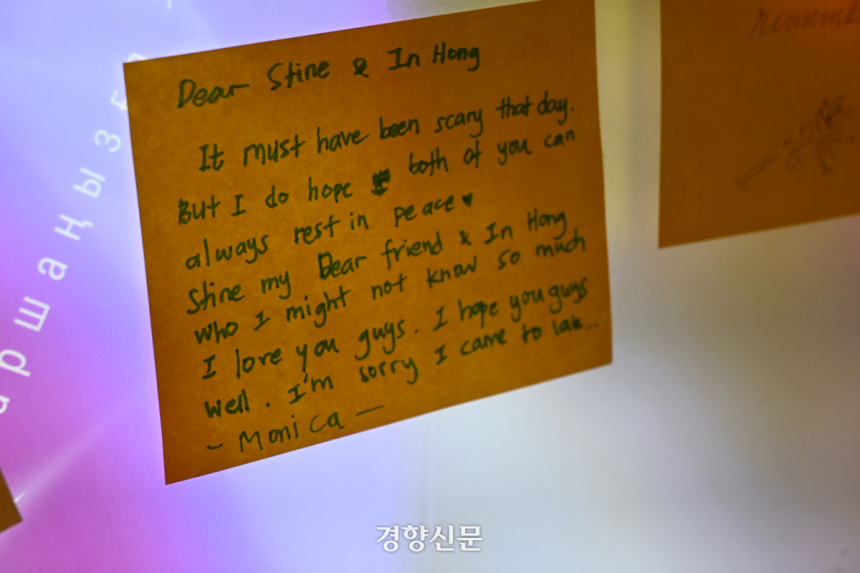 Dear Stine & In Hong
It must have been scary that day.
But I do hope both of you can
always rest in peace ♥
Stine my Dear friend & In Hong
who I might not know so much
I love you guys. I hope you guys
well. I'm sorry I came to late...
- Monica -
Rememb
аршаңыз
경향신문